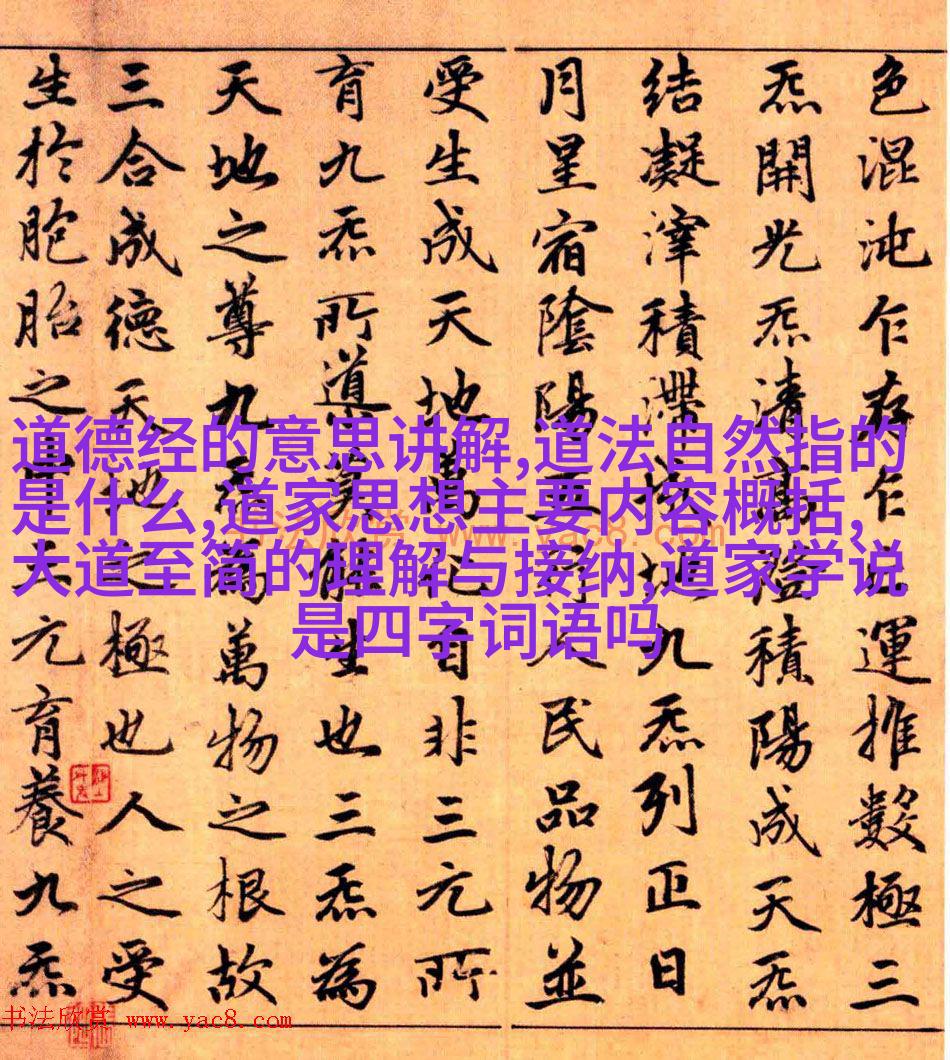 色混沌乍存乍亡運推數極三
炁開光炁清高澄積陽成天炁
結凝滓積滯成地九炁列正日
月星宿陰陽五行人民品物並
受生成天地萬化自非三元所
育九炁所導莫能生也三炁為
天地之尊九炁為萬物之根故
三合成德天地之極也人之受
生於胞胎之中三元育養九炁
道德经的意思讲解,道法自然指的
是什么,道家思想主要内容概括,
大道至简的理解与接纳,道家学说
是四字词语吗
书法欣赏 www.yac8.com
书法欣赏 www.yac8.com